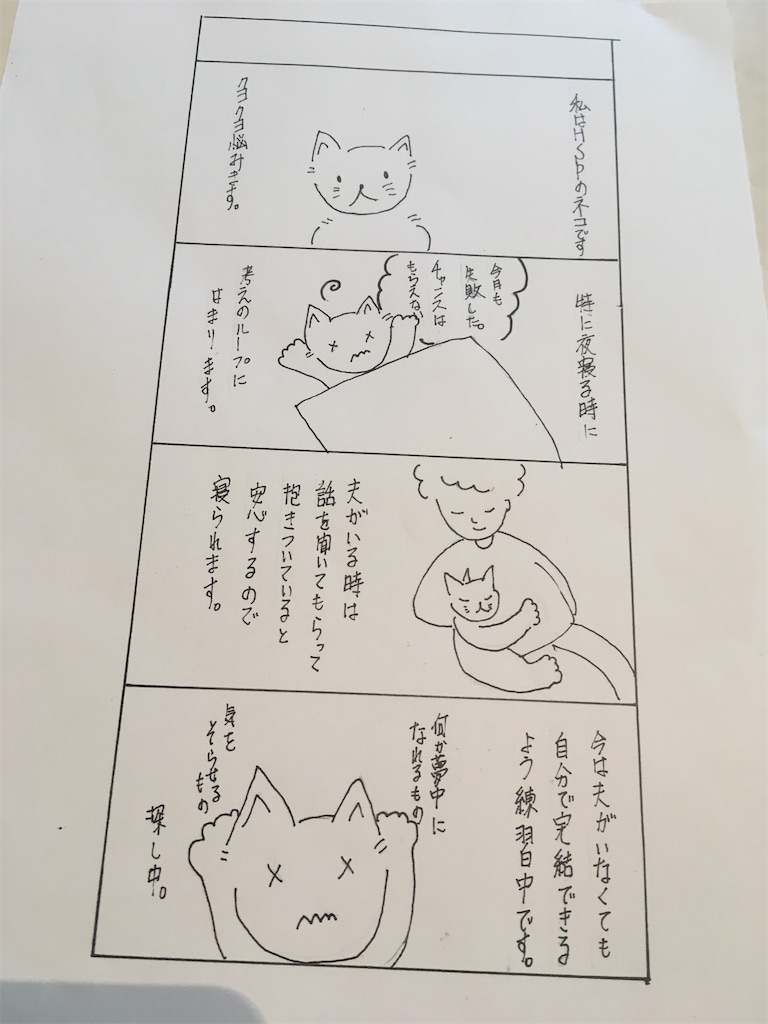 私はHSPのネコです
クヨクヨ悩みます。
特に夜寝る時に
今日も
失敗した。
チャンスは
もらえない
考えのループに
はまります。
夫がいる時は
話を聞いてもらって
抱きついていると
安心するので
寝られます。
今は夫がいなくても
自分で完結できる
よう練習中です。
何か夢中に
なれるもの
気を
そらせる
もの
探し中。